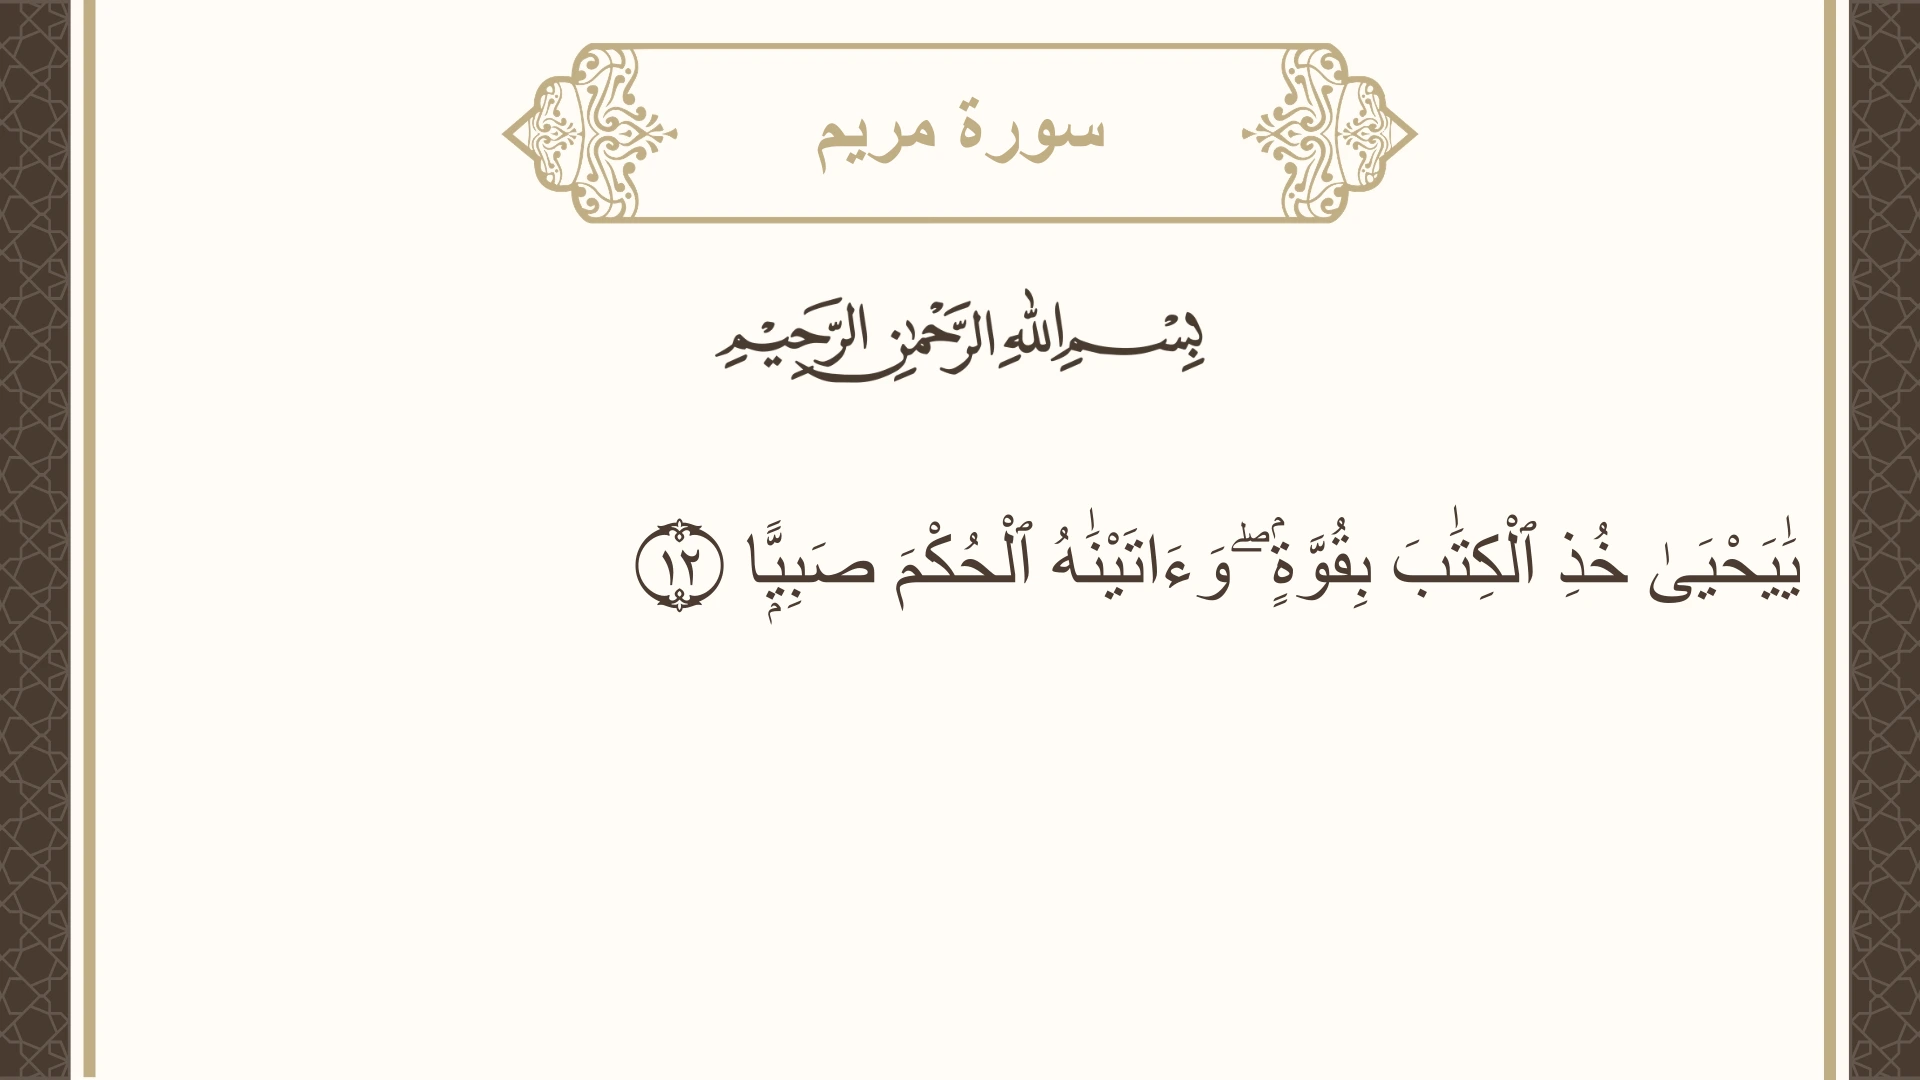 سورة مريم
بِسْمِ اللهِ الرَّحْمٰنِ الرَّحِيْمِ
يَٰيَحْيَىٰ خُذِ ٱلْكِتَٰبَ بِقُوَّةٍۢ ۖ وَءَاتَيْنَٰهُ ٱلْحُكْمَ صَبِيًّۭا ١٢